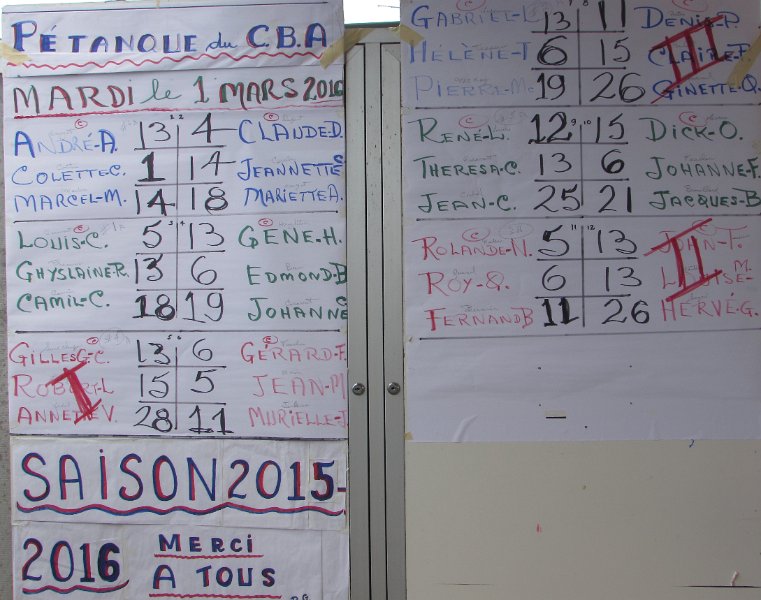 PÉTANQUE du C.B.A
MARDI le 1 MARS 2016
ANDRÉ-A. 13 4 CLAUDE-D.
COLETTE-C. 1 14 JEANNETTE C
MARCEL-M. 14 18 MARIETTE A.
LOUIS-C. 5 13 GÈNE-H.
GHYSLAINE-R. 13 6 EDMOND-B
CAMIL-C. 18 19 JOHANNE C
GILLES G-C. 13 6 GÉRARD-F.
ROBERT-L 15 5 JEAN-M
ANNETTE V. 28 11 MURIELLE-J
I
SAISON 2015-
2016 MERCI
A TOUS
GABRIEL-L 13 11 DENIS-P.
HÉLÈNE-T 6 15 CLAIRE-P.
PIERRE-M. 19 26 GINETTE-Q.
III
RENÉ-L. 12 15 DICK-O.
THERESA-C. 13 6 JOHANNE-F.
JEAN-C. 25 21 JACQUES-B
ROLANDE-N. 5 13 JOHN-F.
ROY-Q. 6 13 LOUISE-M.
FERNAND B 11 26 HERVÉ-G.
II